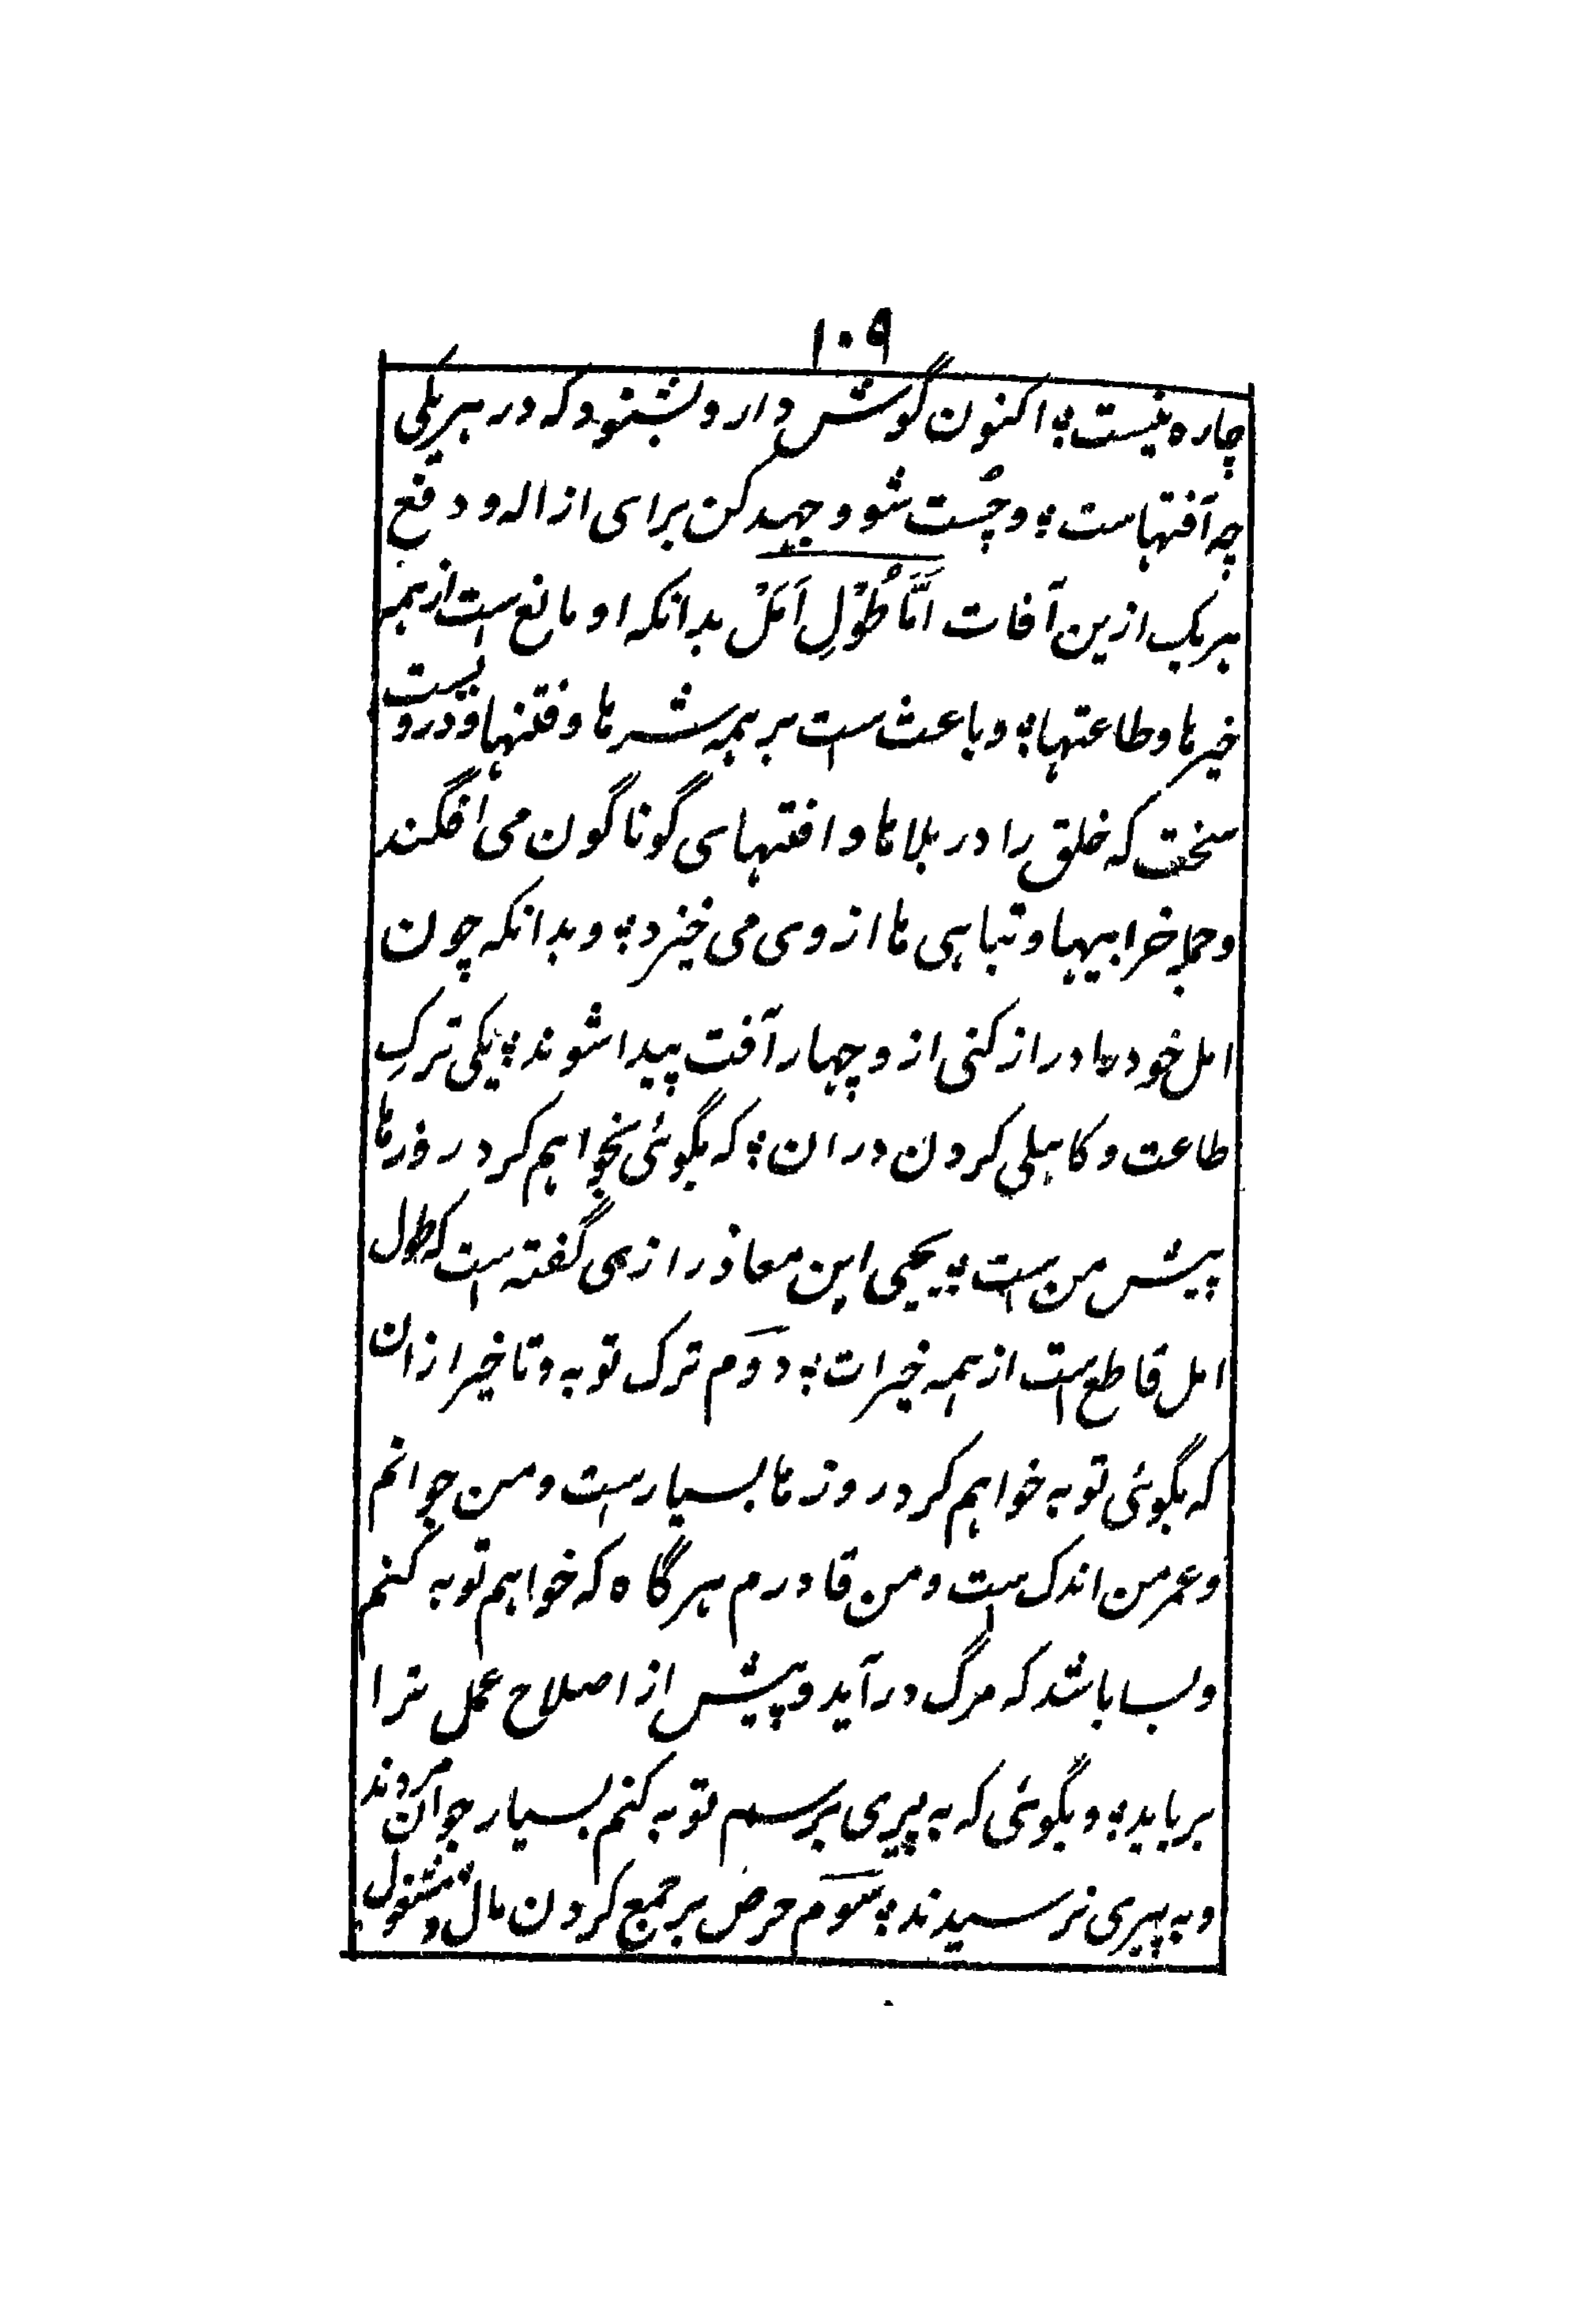 ۱۰۹
چاره نیست؛ اکنون گوش دار و بشنو و که در هر یکی
چه آفتهاست؛ و چُست شو و جهد کن برای ازاله و دفع
هر یک ازین آفات اَمَّا طُوْلِ اَمَلْ بدانکه او مانع است از همه
خیرها و طاعتها؛ و باعث است بر همه شرها و فتنها و دردیست
سخت که خلق را در بلاها و افتهای گوناگون می افگند
و جمله خرابیها و تباهی ها از وی می خیزد؛ و بدانکه چون
امل خود را دراز کنی از و چهار آفت پیدا شوند؛ یکی ترکِ
طاعت و کاهلی کردن دران؛ که بگوئی بخواهم کرد روزها
پیش من است؛ یحیی ابن معاذ رازی گفته است که طول
امل قاطع است از همه خیرات؛ دوم ترک توبه و تاخیر ازان
که بگوئی توبه خواهم کرد روزها بسیار است و من جوانم
و عمر من اندک است و من قادرم هرگاه که خواهم توبه کنم
و بسا باشد که مرگ درآید و پیش از اصلاح عمل ترا
برباید؛ و بگوئی که به پیری برسم توبه کنم بسیار جوان مردند
و به پیری نرسیدند؛ سوم حرص بر جمع کردن مال و مشغول